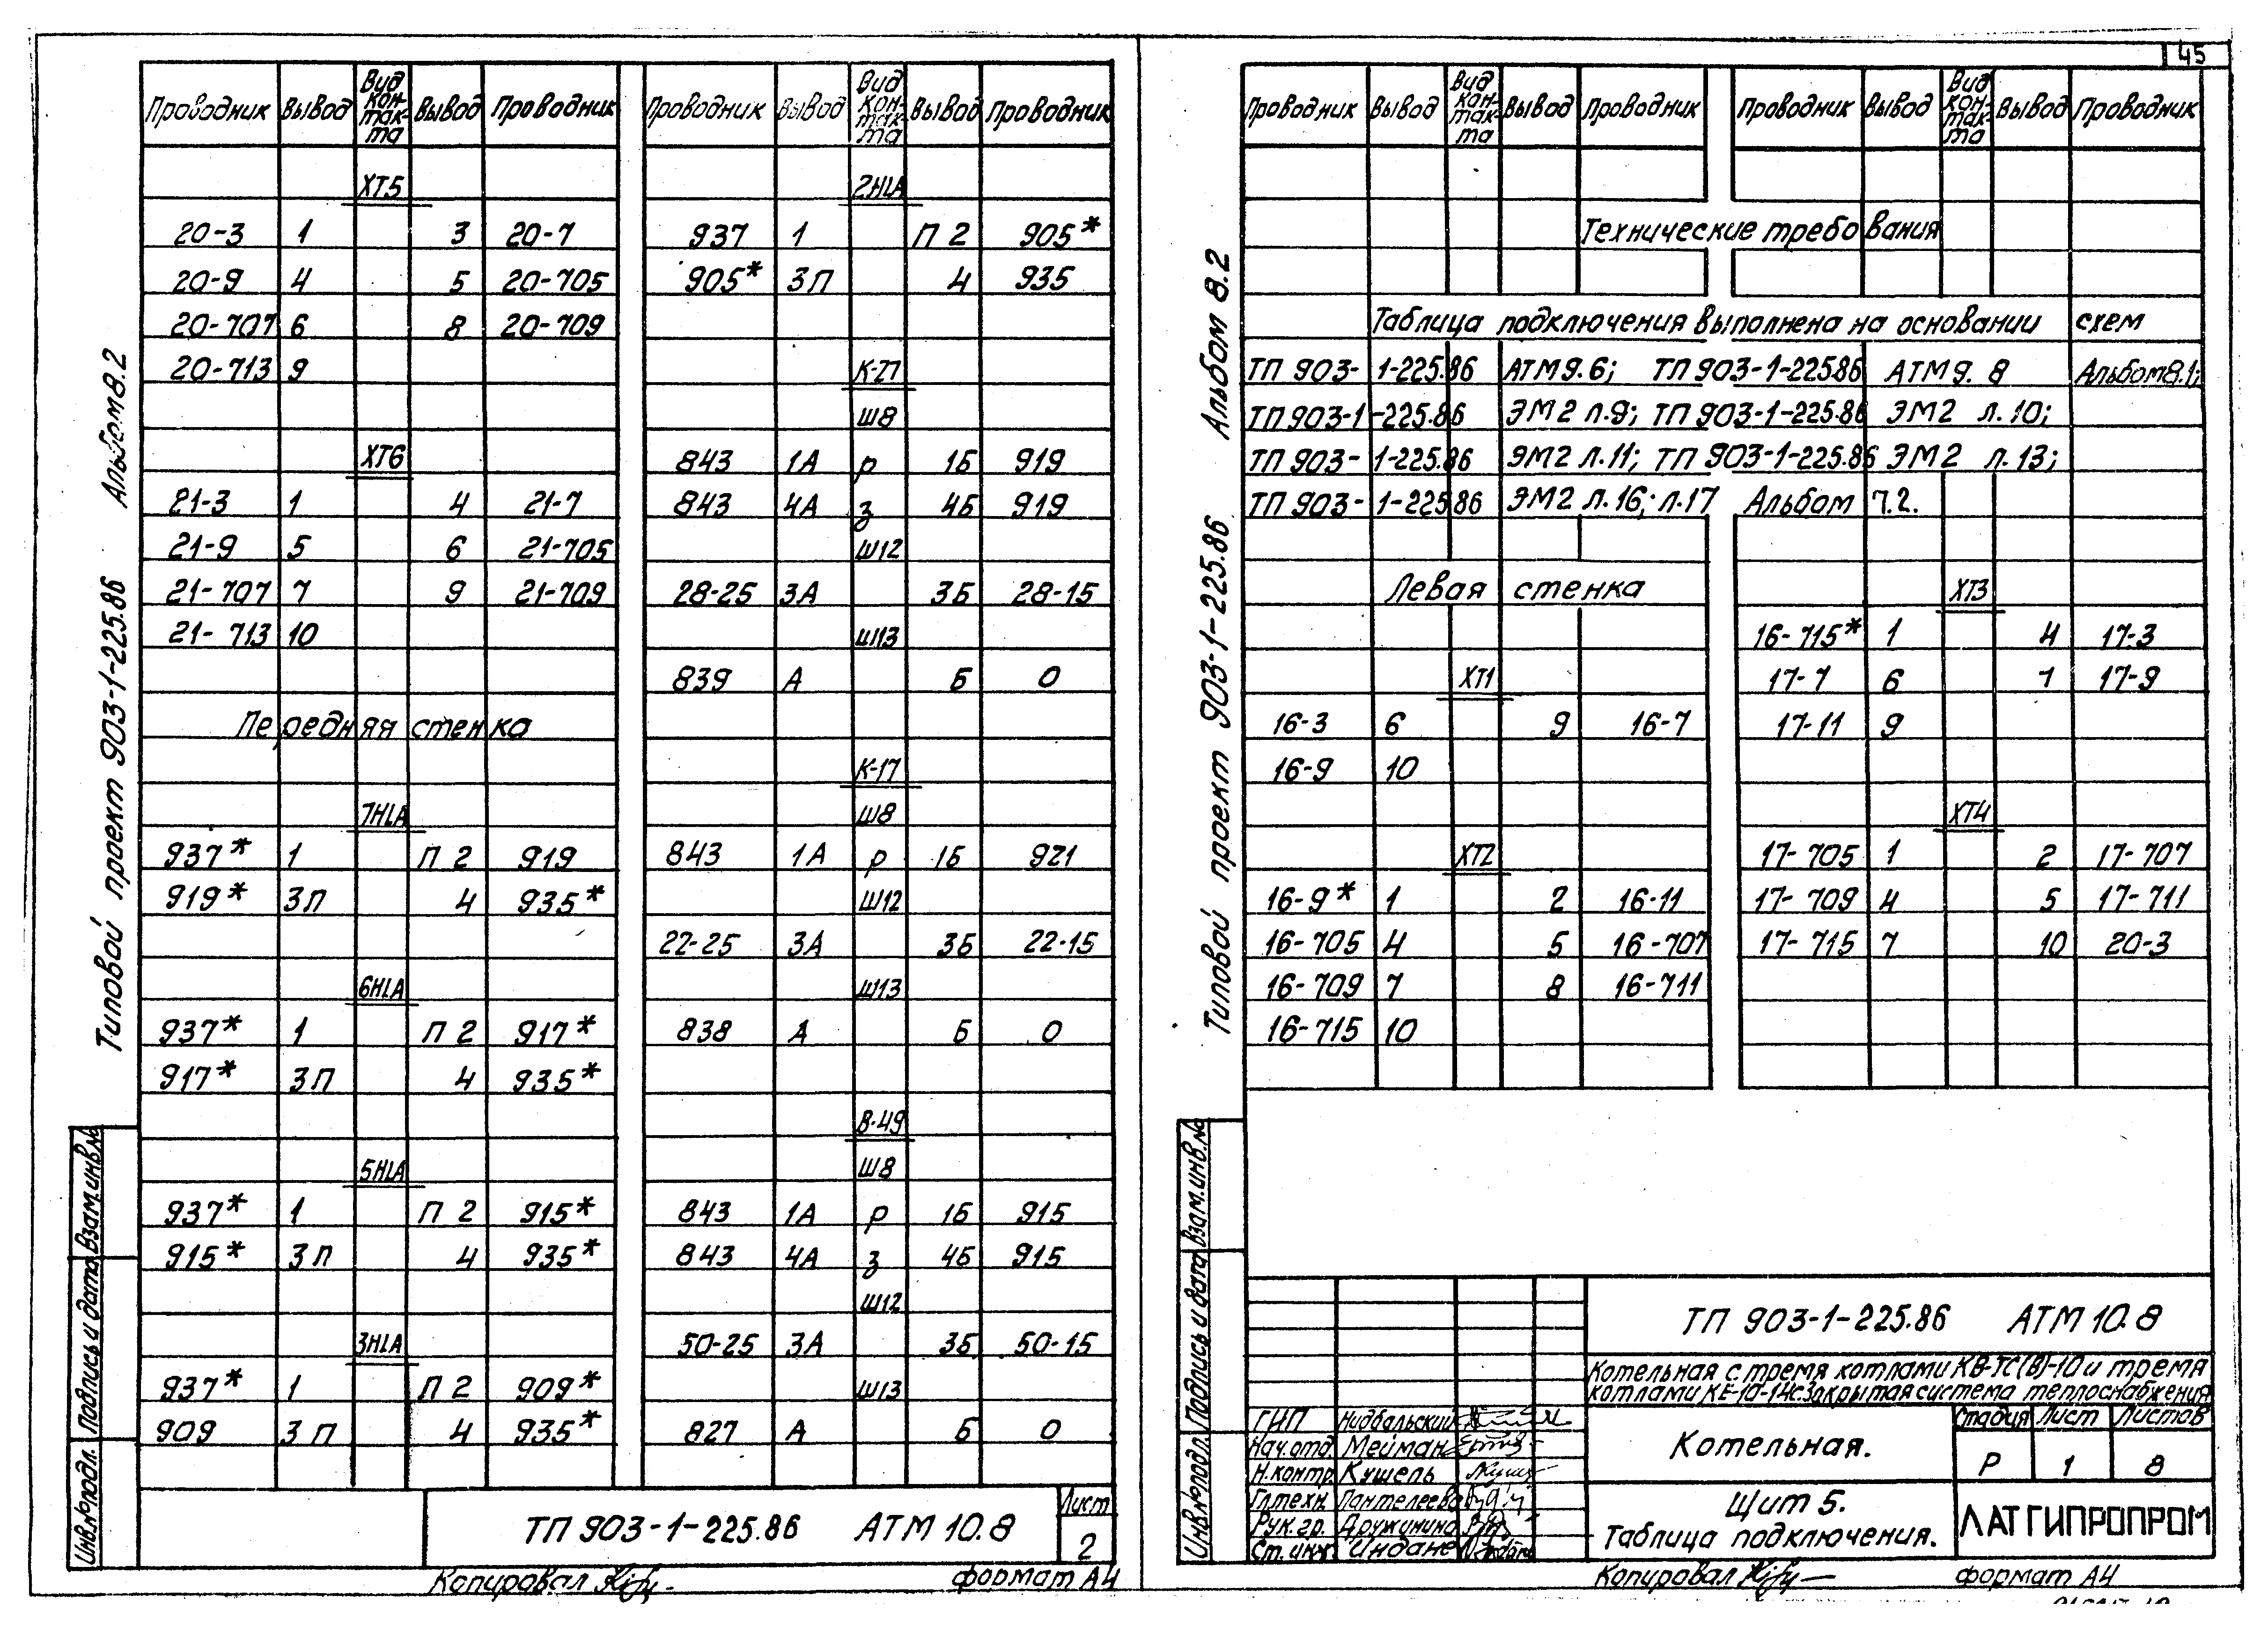 45
Проводник Вывод Вид контакта Вывод Проводник Проводник Вывод Вид контакта Вывод Проводник
ХТ5 2HLA
20-3 1 3 20-7 937 1 П 2 905*
20-9 4 5 20-705 905* 3П 4 935
20-707 6 8 20-709
20-713 9 К-27
Ш8
ХТ6 843 1А р 1Б 919
21-3 1 4 21-7 843 4А з 4Б 919
21-9 5 6 21-705 Ш12
21-707 7 9 21-709 28-25 3А 3Б 28-15
21-713 10 Ш13
839 А Б 0
Передняя стенка
К-17
7HLA Ш8
937* 1 П 2 919 843 1А р 1Б 921
919* 3П 4 935* Ш12
22-25 3А 3Б 22-15
6HLA Ш13
937* 1 П 2 917* 838 А Б 0
917* 3П 4 935*
В-49
5HLA Ш8
937* 1 П 2 915* 843 1А р 1Б 915
915* 3П 4 935* 843 4А з 4Б 915
Ш12
3HLA 50-25 3А 3Б 50-15
937* 1 П 2 909* Ш13
909 3П 4 935* 827 А Б 0
ТП 903-1-225.86 АТМ 10.8
Лист
2
Копировал
формат А4
Типовой проект 903-1-225.86 Альбом 8.2
Инв.№подл. Подпись и дата Взам.инв.№
Проводник Вывод Вид контакта Вывод Проводник Проводник Вывод Вид контакта Вывод Проводник
Технические требования
Таблица подключения выполнена на основании схем
ТП 903-1-225.86 АТМ9.6; ТП 903-1-225.86 АТМ9.8 Альбом 8.1;
ТП 903-1-225.86 ЭМ2 л.9; ТП 903-1-225.86 ЭМ2 л.10;
ТП 903-1-225.86 ЭМ2 л.11; ТП 903-1-225.86 ЭМ2 л.13;
ТП 903-1-225.86 ЭМ2 л.16; л.17 Альбом 7.2.
Левая стенка ХТ3
16-715* 1 4 17-3
ХТ1 17-7 6 7 17-9
16-3 6 9 16-7 17-11 9
16-9 10
ХТ4
ХТ2 17-705 1 2 17-707
16-9* 1 2 16-11 17-709 4 5 17-711
16-705 4 5 16-707 17-715 7 10 20-3
16-709 7 8 16-711
16-715 10
Типовой проект 903-1-225.86 Альбом 8.2
Инв.№подл. Подпись и дата Взам.инв.№
ТП 903-1-225.86 АТМ 10.8
Котельная с тремя котлами КВ-ТС(В)-10 и тремя
котлами КЕ-10-14с. Закрытая система теплоснабжения
ГИП Нидбальский
Нач.отд. Мейман
Н.контр. Кушель
Гл.техн. Пантелеева
Рук.гр. Дружинина
Ст.инж. Индане
Котельная.
Стадия Лист Листов
Р 1 8
Щит 5.
Таблица подключения.
ЛАТГИПРОПРОМ
Копировал
формат А4